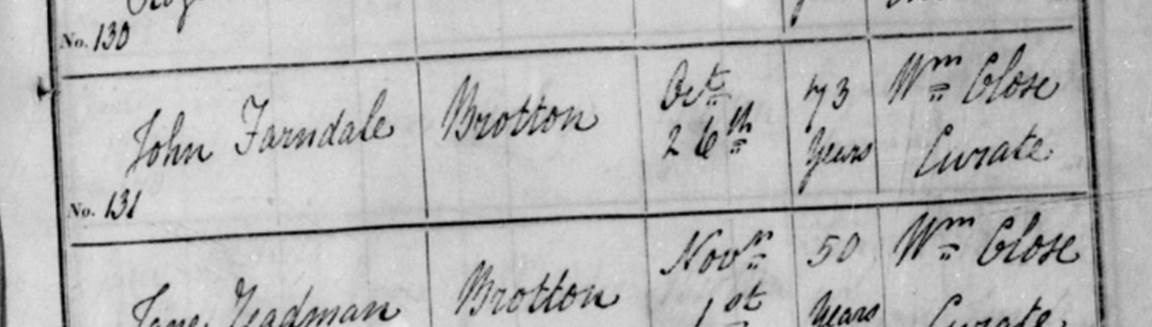 No. 130
John Farndale Brotton Octr 26th 73 Years Wm Close Curate
No. 131
Jane Yeadman Brotton Novr 1st 50 Years Wm Close Curate